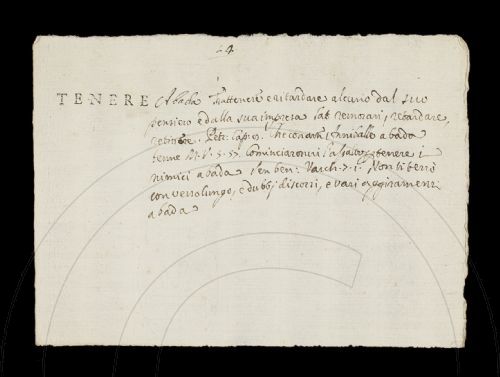 24
TENERE A bada Trattenere e ritardare alcuno dal suo
pensiero e dalla sua impresa Lat. remorari, retardare,
retinere. Petr. cap. 9. Annibale a bada
tenne M. V. 5. 57. cominciarono tenere i
nimici a bada Sen. ben. Varch. 7. 1. Non ti terrò
con verso lungo, e dubbj discorsi, e vari aggiramenti
a bada